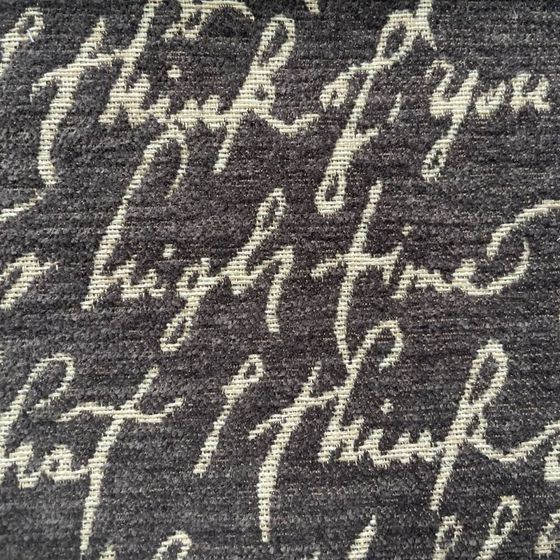 think of you
high time
hat I think